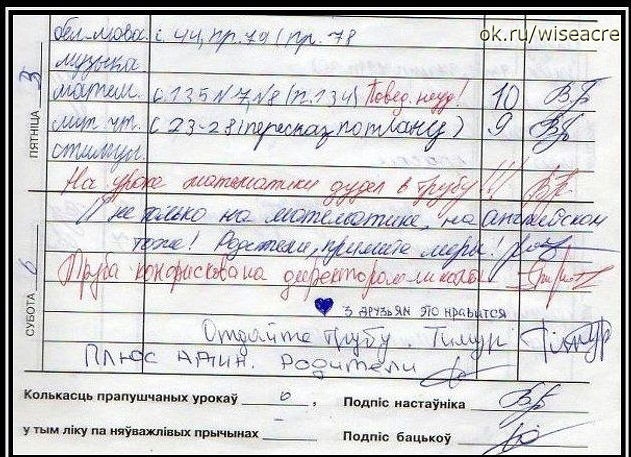 ok.ru/wiseacre
бел. мова. с. 44, пр. 79 / пр. 78
музыка.
ПЯТНІЦА 5
матем. с. 135 № 7, № 8 (п. 134) Повед. неуд! 10
лит. чт. с 23-28 (пересказ по плану) 9
стимул.
На уроке математики дудел в трубу!!!
И не только на математике, на английском
тоже! Родители, примите меры!
СУБОТА 6
Труба конфискована директором школы
♥ 3 друзьям это нравится
Отдайте трубу. Тимур Тимур
Плюс Адин. Родители
Колькасць прапушчаных урокаў 0, Подпіс настаўніка
у тым ліку па няўважлівых прычынах – Подпіс бацькоў